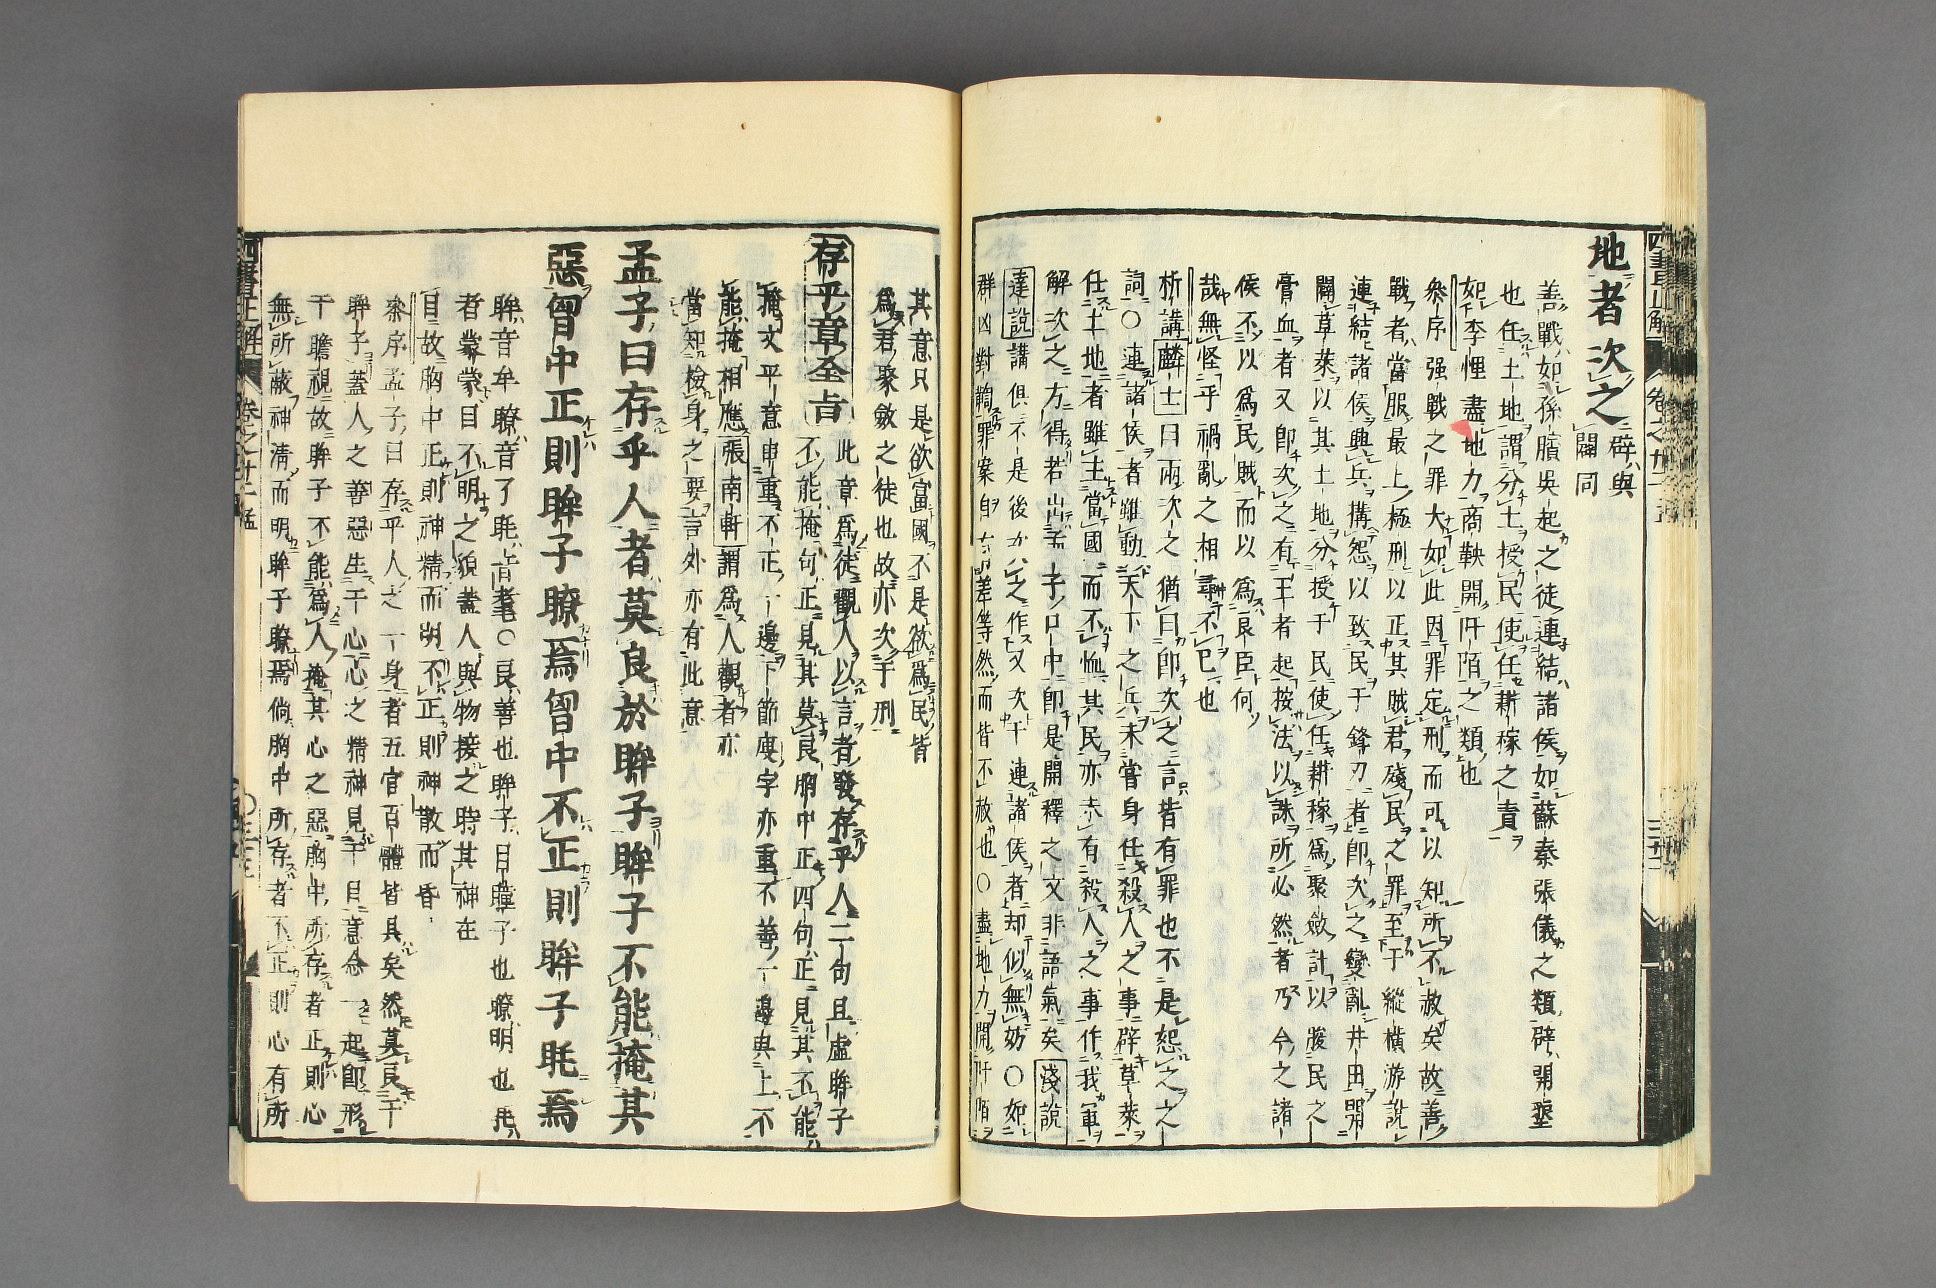 地者次之 辟與
闢同
善戰如孫臏吳起之徒連結諸侯如蘇秦張儀之類辟開墾
也任土地謂分土授民使任耕稼之責
如李悝盡地力商鞅開阡陌之類也
參序强戰之罪大如此因罪定刑而可以知所不赦矣故善
戰者當服最上極刑以正其賊君殘民之罪至于縱橫游說
連結諸侯興兵搆怨以致民于鋒刃者卽次之變亂井田開
闢草萊以其土地分授于民使任耕稼爲聚斂計以朘民之
膏血者又卽次之有王者起按法以誅所必然者乃今之諸
侯不以爲民賊而以爲良臣何
哉無怪乎禍亂之相尋不已也
析講 麟士曰兩次之猶曰卽次之之言皆有罪也不是恕之之
詞〇連諸侯者雖動天下之兵未嘗身任殺人之事辟草萊
任土地者雖主當國而不恤其民亦未有殺人之事作我軍
解次之之方得若出孟子口中卽是開釋之文非語氣矣 淺說
達說 講俱不是後 之作又次于連諸侯者却似無妨〇如
群凶對鞫罪案自 差等然而皆不赦也〇盡地力開阡陌
其意只是欲富國不是欲爲民皆
爲君聚斂之徒也故亦次于刑
存乎章全旨 此章爲徒觀人以言者發存乎人二句且虛眸子
不能掩句正見其莫良胸中正四句正見其不能
掩文平意串重不正一邊下節廋字亦重不善一邊與上不
能掩相應 張南軒 謂爲人觀者亦
當知檢身之要言外亦有此意
孟子曰存乎人者莫良於眸子眸子不能掩其
惡胷中正則眸子瞭焉胷中不正則眸子眊焉
眸音牟瞭音了眊音耄〇良善也眸子目瞳子也瞭明也眊
者蒙蒙目不明之貌蓋人與物接之時其神在
目故胸中正則神精而明不正則神散而昏
參序孟子曰存乎人之一身者五官百體皆具矣然莫良于
眸子蓋人之善惡生于心心之精神見于目意念一起卽形
于瞻視故眸子不能爲人掩其心之惡胸中所存者正則心
無所蔽神淸而明眸子瞭焉倘胸中所存者不正則心有所